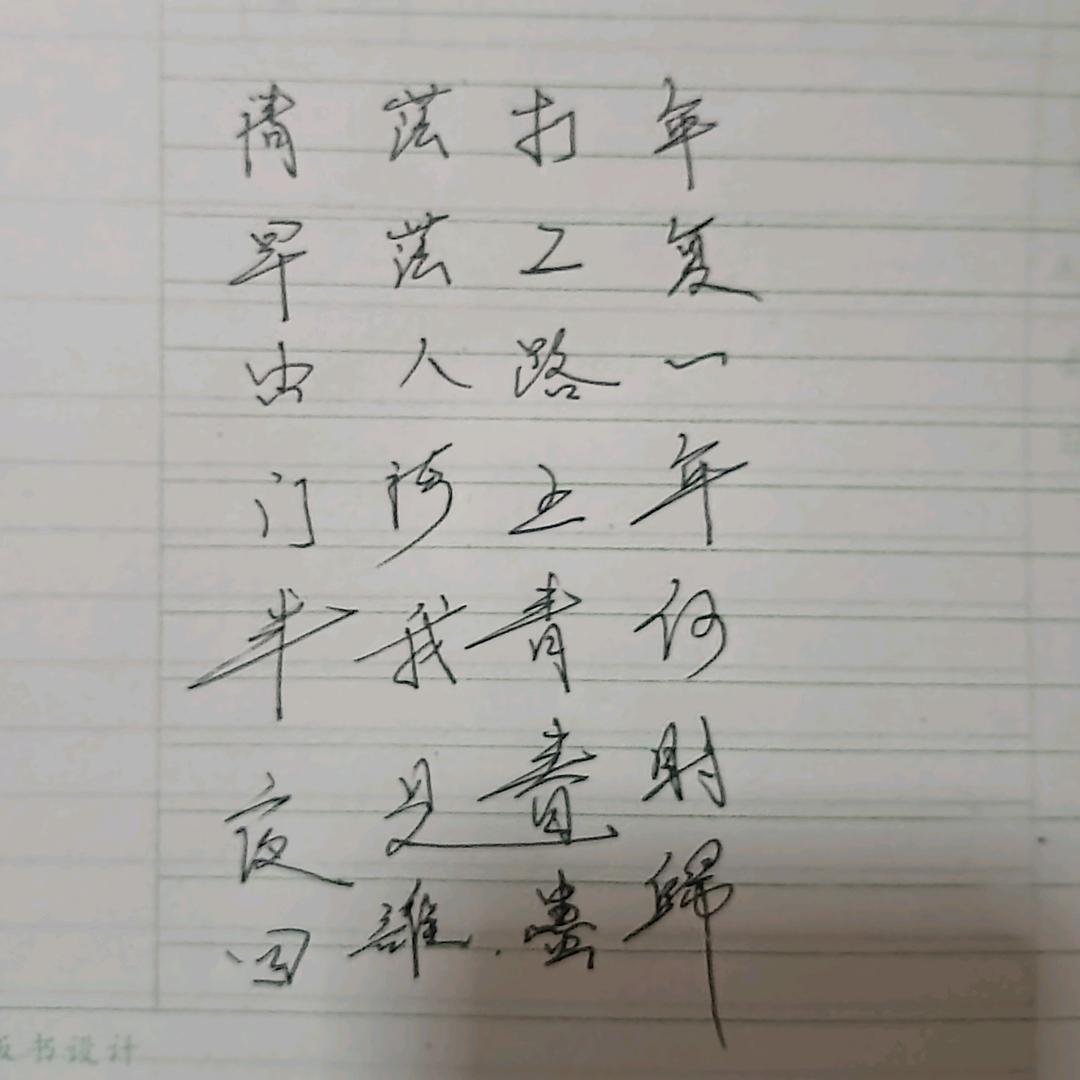 清早出门半夜回
茫茫人海我是誰
打工路上青春盡
年复一年何时歸
书设计